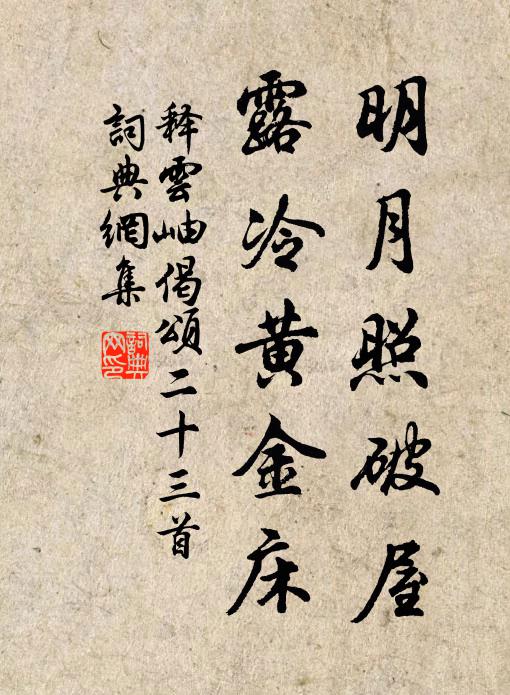 明月照破屋
露冷黄金床
释雲岫偈頌二十三首
詞典網集
詞典網印